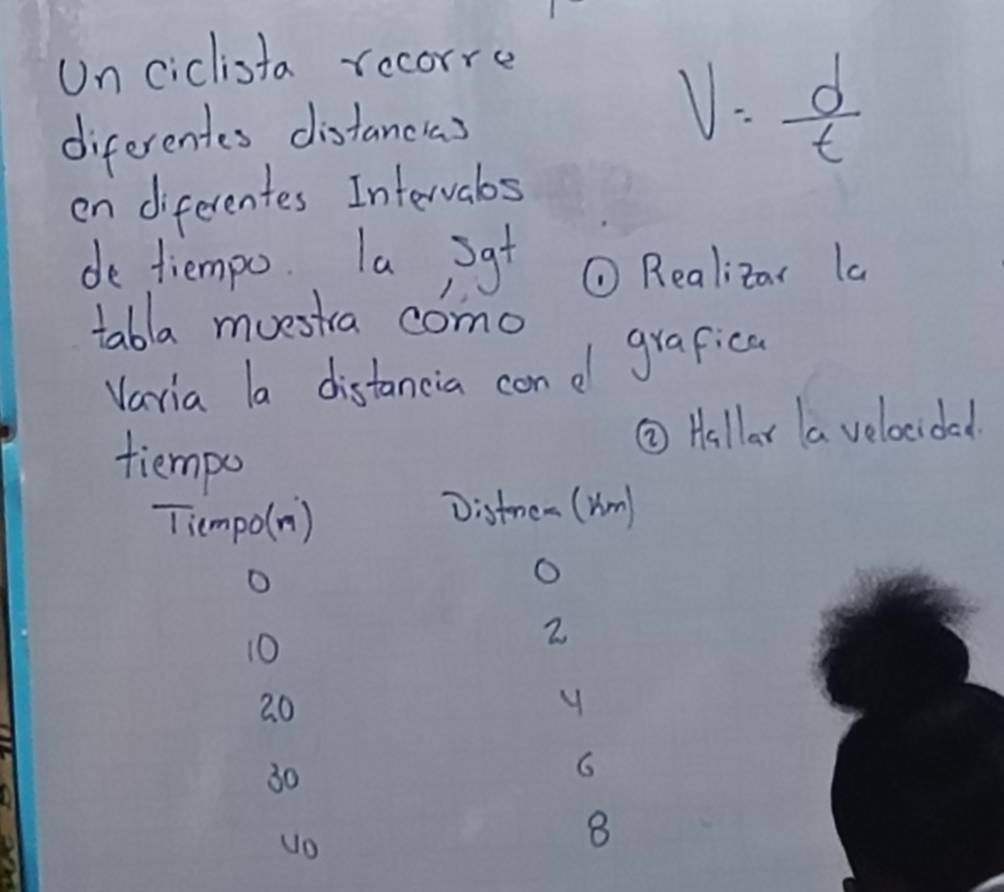 Un ciclista recorre
diferentes distancias
en diferentes Intervalos
de tiempo. la Sgt
tabla muestra cómo
Varía la distancia con el
tiempo
V = d/t
① Realizar la
grafica
② Hallar la velocidad.
Tiempo(m) Distncia (Km)
0 0
10 2
20 4
30 6
40 8